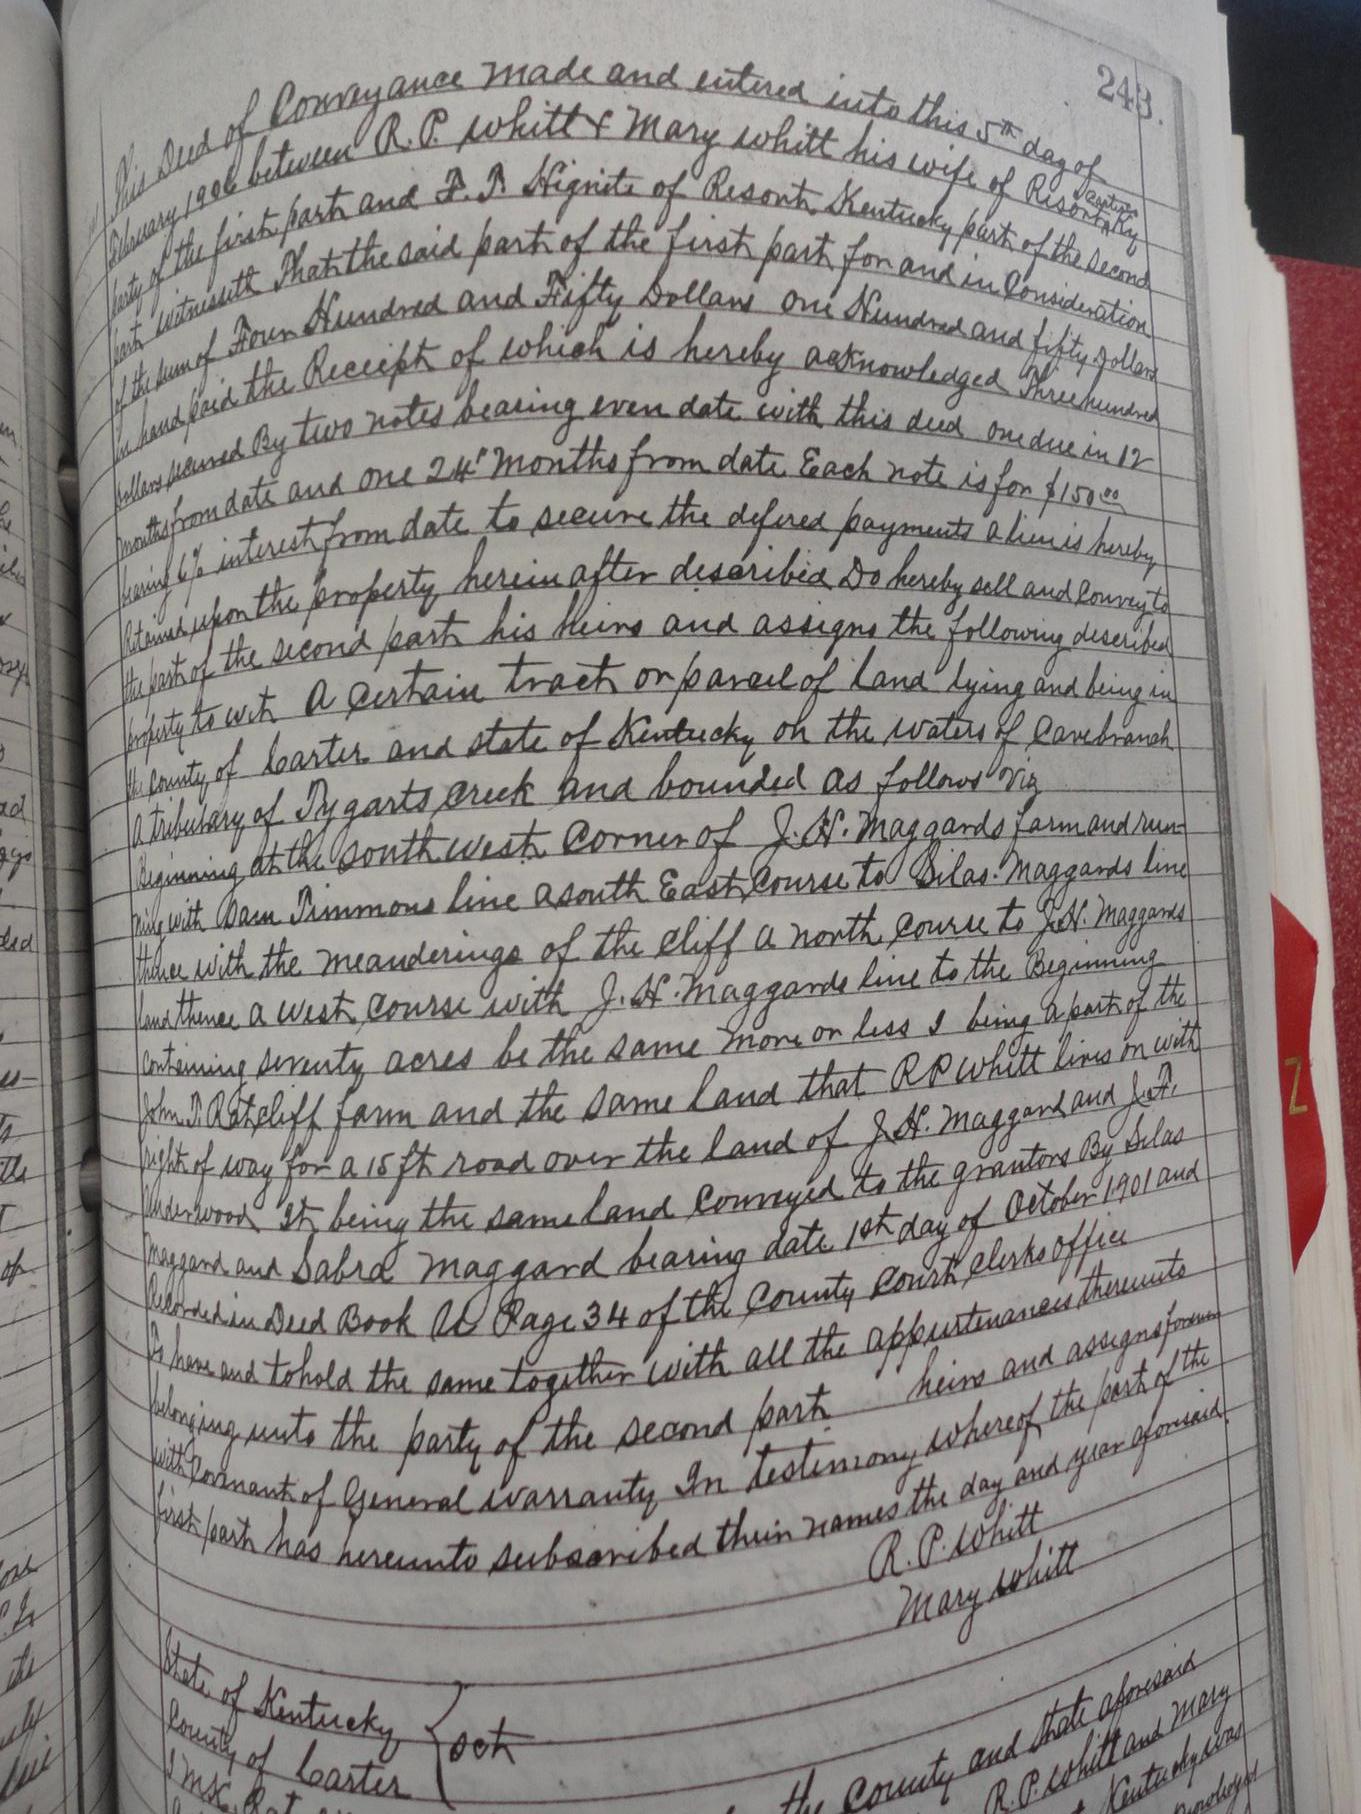 243.
This Deed of Conveyance made and entered into this 5th day of
February 1906 between R.P. Whitt & Mary Whitt his wife of Resort, Carter Ky
party of the first part and F. T. Hignite of Resort Kentucky part of the second
part witnesseth That the said part of the first part for and in Consideration
of the sum of Four Hundred and Fifty Dollars one Hundred and fifty Dollars
in hand paid the Receipt of which is hereby acknowledged Three hundred
Dollars secured By two notes bearing even date with this deed one due in 12
months from date and one 24" months from date Each note is for $150.00
bearing 6% interest from date to secure the defered payments a lien is hereby
Retained upon the property herein after described Do hereby sell and Convey to
the part of the second part his heirs and assigns the following described
property to wit A Certain tract or parcel of land lying and being in
the County of Carter and state of Kentucky on the waters of Cavebranch
A tributary of Tygarts Creek and bounded as follows viz
Beginning at the south west Corner of J. H. Maggards farm and run-
ning with Sam Timmons line a south East Course to Silas Maggards line
thence with the meanderings of the cliff a north course to J.H. Maggards
land thence a west course with J. H. Maggards line to the Beginning
Containing seventy acres be the same more or less & being a part of the
John T. Ratcliff farm and the same land that R P Whitt lives on with
right of way for a 15 ft road over the land of J. H. Maggard and J. F.
Underwood It being the same land Conveyed to the grantors By Silas
Maggard and Sabra Maggard bearing date 1st day of October 1901 and
Recorded in Deed Book U Page 34 of the County Court Clerks office
To have and to hold the same together with all the appurtenances thereunto
belonging unto the party of the second part heirs and assigns forever
with Covenant of General warranty In testimony whereof the part of the
first part has hereunto subscribed their names the day and year aforesaid.
R. P. Whitt
Mary Whitt
State of Kentucky
County of Carter } Sct
the County and State aforesaid
R. P. Whitt and Mary
Kentucky was